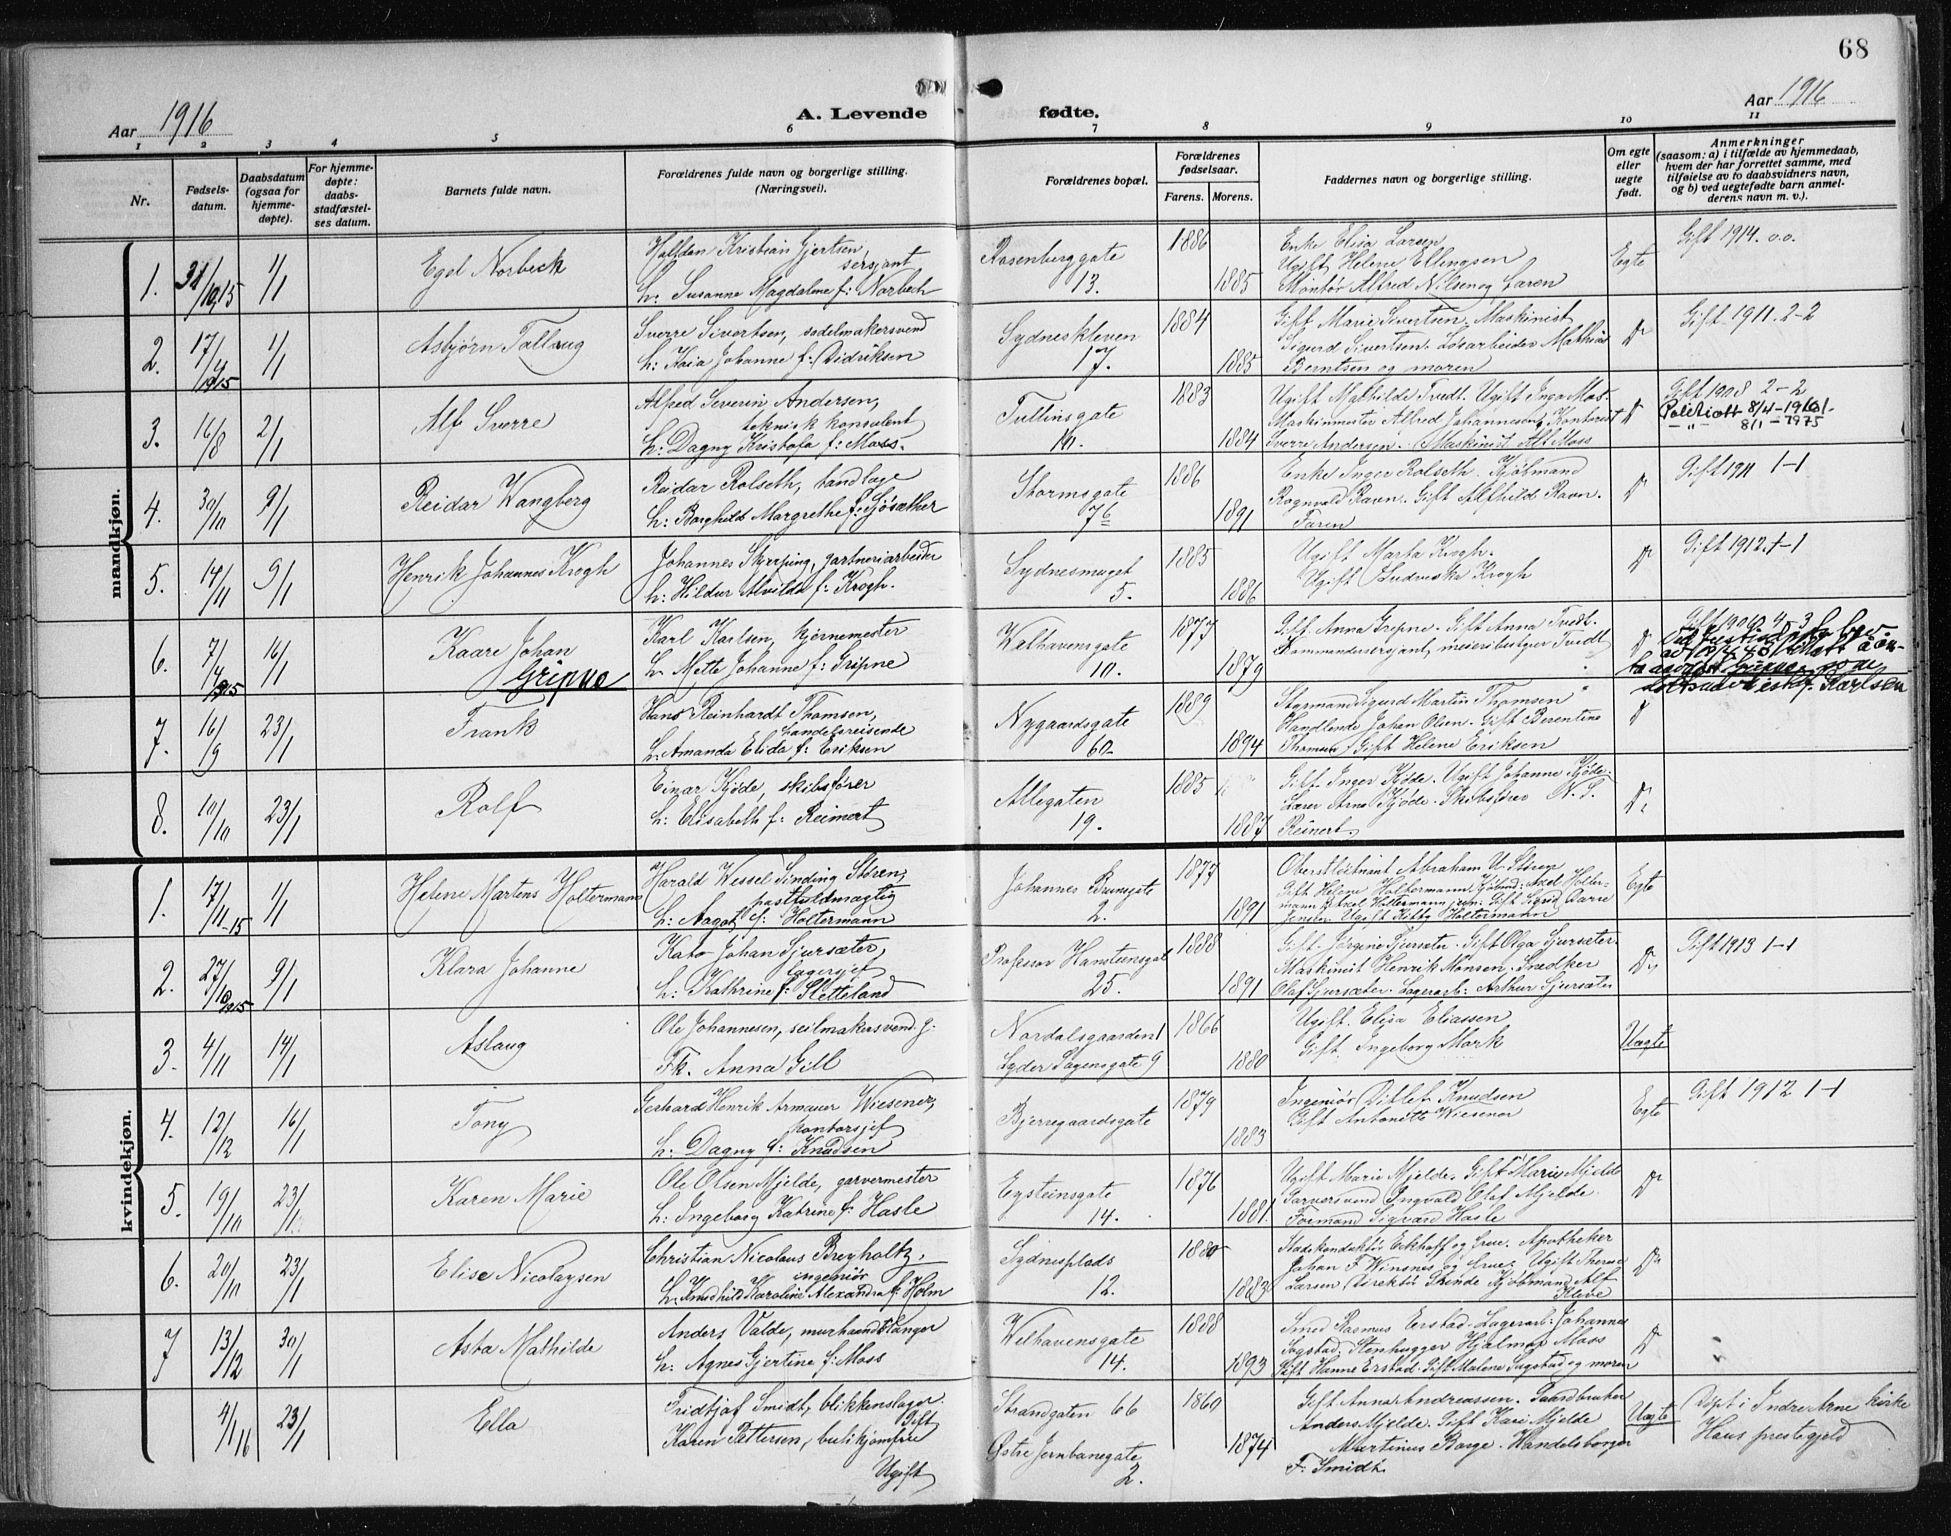 68
Aar 1916
A. Levende fødte.
Aar 1916
1 2 3 4 5 6 7 8 9 10 11
Nr.
Fødsels-
datum.
Daabsdatum
(ogsaa for
hjemme-
døpte).
For hjemme-
døpte:
daabs-
stadfæstel-
ses datum.
Barnets fulde navn.
Forældrenes fulde navn og borgerlige stilling.
(Næringsvei).
Forældrenes bopæl.
Forældrenes
fødselsaar.
Farens. Morens.
Faddernes navn og borgerlige stilling.
Om egte
eller
uegte
født.
Anmerkninger
(saasom: a) i tilfælde av hjemmedaab,
hvem der har forrettet samme, med
tilføielse av to daabsvidners navn,
og b) ved uegtefødte barn anmel-
derens navn m. v.).
mandkjøn.
1. 31/10 15 1/1
Egol Norbeck
Halfdan Kristian Gjertsen,
sersjant
h. Susanne Magdalene f: Norbech
Rosenberggate
13.
1886
1885
Enke Elisa Larsen
Ugift Helene Ellingsen
Montør Alfred Nilsen og Faren
Egte
Gift 1914. o.o.
2. 17/4 1915 1/1
Asbjørn Tallaug
Sverre Sivertsen, sadelmakersvend
h: Kaia Johanne f: Didriksen
Sydneskleven
17.
1884
1885
Gift Marie Sivertsen. Maskinist
Sigurd Sivertsen. Løsarbeider Mathias
Berntsen og moren
Do
Gift 1911. 2-2
3. 16/8 2/1
Alf Sverre
Alfred Severin Andersen,
teknisk konsulent
h: Dagny Kristofa f: Moss.
Tullinsgate
1883
1884
Ugift Mathilde Tvedt. Ugift Inga Moss.
Maskinmester Alfred Johannesen, Kontorist
Sverre Andersen. Maskinist Alf Moss
Do
Gift 1908 2-2
Politiatt 8/4-1961.
-"- 8/1-1975
4. 30/10 9/1
Reidar Wangberg
Reidar Rolseth, tandlæge
h: Borghild Margrethe f: Sjøsæther
Stormsgate
7b
1886
1891
Enke Inger Rolseth. Kjøbmand
Rognvald Ravn. Gift Alfhild Ravn.
Faren
Do
Gift 1911 1-1
5. 14/11 9/1
Henrik Johannes Krogh
Johannes Skjepping, gartneriarbeider
h: Hildur Alvilda f: Krogh.
Sydnesmuget
5.
1885
1886
Ugift Marta Krogh.
Ugift Ludvikka Krogh
Do
Gift 1912. 1-1
6. 7/4 1915 16/1
Kaare Johan
Gripne
Karl Karlsen, kjernemester
h. Mette Johanne f: Gripne
Welhavensgate
10.
1877
1879
Gift Anna Gripne. Gift Anna Tvedt.
Kommandersersjant, meieribestyrer Tvedt
Do
7. 16/9 23/1
Frank
Hans Reinhardt Thomsen,
handelsreisende
h. Amanda Elida f: Eriksen
Nygaardsgate
60
1889
1894
Styrmand Sigurd Martin Thomsen
Handlende Johan Olsen. Gift Berentine
Thomsen, Gift Helene Eriksen
Do
8. 10/10 23/1
Rolf
Einar Kjøde, skibsfører
h: Elisabeth f: Reimert
Allegaten
19.
1885
1887
Gift Inger Kjøde. Ugift Johanne Kjøde.
Lærer Arne Kjøde. Skibsfører N. S.
Reinert
Do.
kvindekjøn.
1. 17/11-15 1/1
Helene Martens Holtermann
Harald Wessel Sinding Støren,
postfuldmægtig
h: Aagot f: Holtermann
Johannes Brunsgate
2.
1875
1891
Oberstløitnant Abraham W. Støren
Gift Helene Holtermann, Kjøbmd: Axel Holter-
mann
Jensen Ugift Kitty Holtermann
Egte
2. 27/10 1915 9/1
Klara Johanne
Kato Johan Sjursæter,
lagersjef
h: Kathrine f: Sletteland
Professor Hansteensgat
25.
1888
1891
Gift Jørgine Sjursæter. Gift Olga Sjursæter.
Maskinist Henrik Monsen. Snedker
Olaf Sjursæter. Lagerarb: Arthur Sjursæter
Do.
Gift 1913 1-1
3. 4/11 14/1
Aslaug
Ole Johannesen, seilmakersvend g:
Fk. Anna Gill
Nordalsgaarden 1
Lyder Sagensgate 9
1866
1880
Ugift. Elisa Eliassen
Gift. Ingeborg Mark
Uægte
4. 12/12 16/1
Tony
Gerhard Henrik Armauer Wiesener,
kontorsjef
h: Dagny f: Knudsen
Bjerregaardsgate
1879
1883
Ingeniør Ditlef Knudsen
Gift Antonette Wiesener
Egte
Gift 1912 1-1
5. 19/10 23/1
Karen Marie
Ole Olsen Mjelde, garvermester
h: Ingeborg Katrine f: Hasle
Eysteinsgate
14.
1876
1881
Ugift Marie Mjelde. Gift Marie Mjelde
Garversvend Ingvald Olaf Mjelde.
Formand Sigvard Hasle
Do
6. 20/11 23/1
Elise Nicolaysen
Christian Nicolaus Breyholtz,
ingeniør
h. Ragnhild Karoline Alexandra f: Holm
Sydnesplads
12.
1880
1883
Stadskonduktør Eckhoff og frue. Apotheker
Johan F. Winsnes og frue. Ugift Therese
Larsen Direktør Skinde Kjøbmand Alf
Kleve
Do
7 13/12 30/1
Asta Mathilde
Anders Valde, murhaandlanger
h: Agnes Gjertine f: Moss
Welhavensgate
14.
1888
1893
Smed Rasmus Erstad. Lagerarb: Johannes
Sagstad. Stenhugger Hjalmar Moss
Gift Hanne Erstad. Gift Malene Sagstad og moren
Do
4/1 16 23/1
Ella
Fridtjof Smidt, blikkenslager.
Gift
Karen Pettersen, butikjomfru
Ugift
Strandgaten 66
Østre Jernbanegate
2.
1860
1874
Gift Anna Andreassen. Gaardbruker
Anders Mjelde. Gift Kari Mjelde
Martinus Borge. Handelsborger
F. Smidt
Uægte
Døpt i Indre Arne kirke
Haus prestegjeld